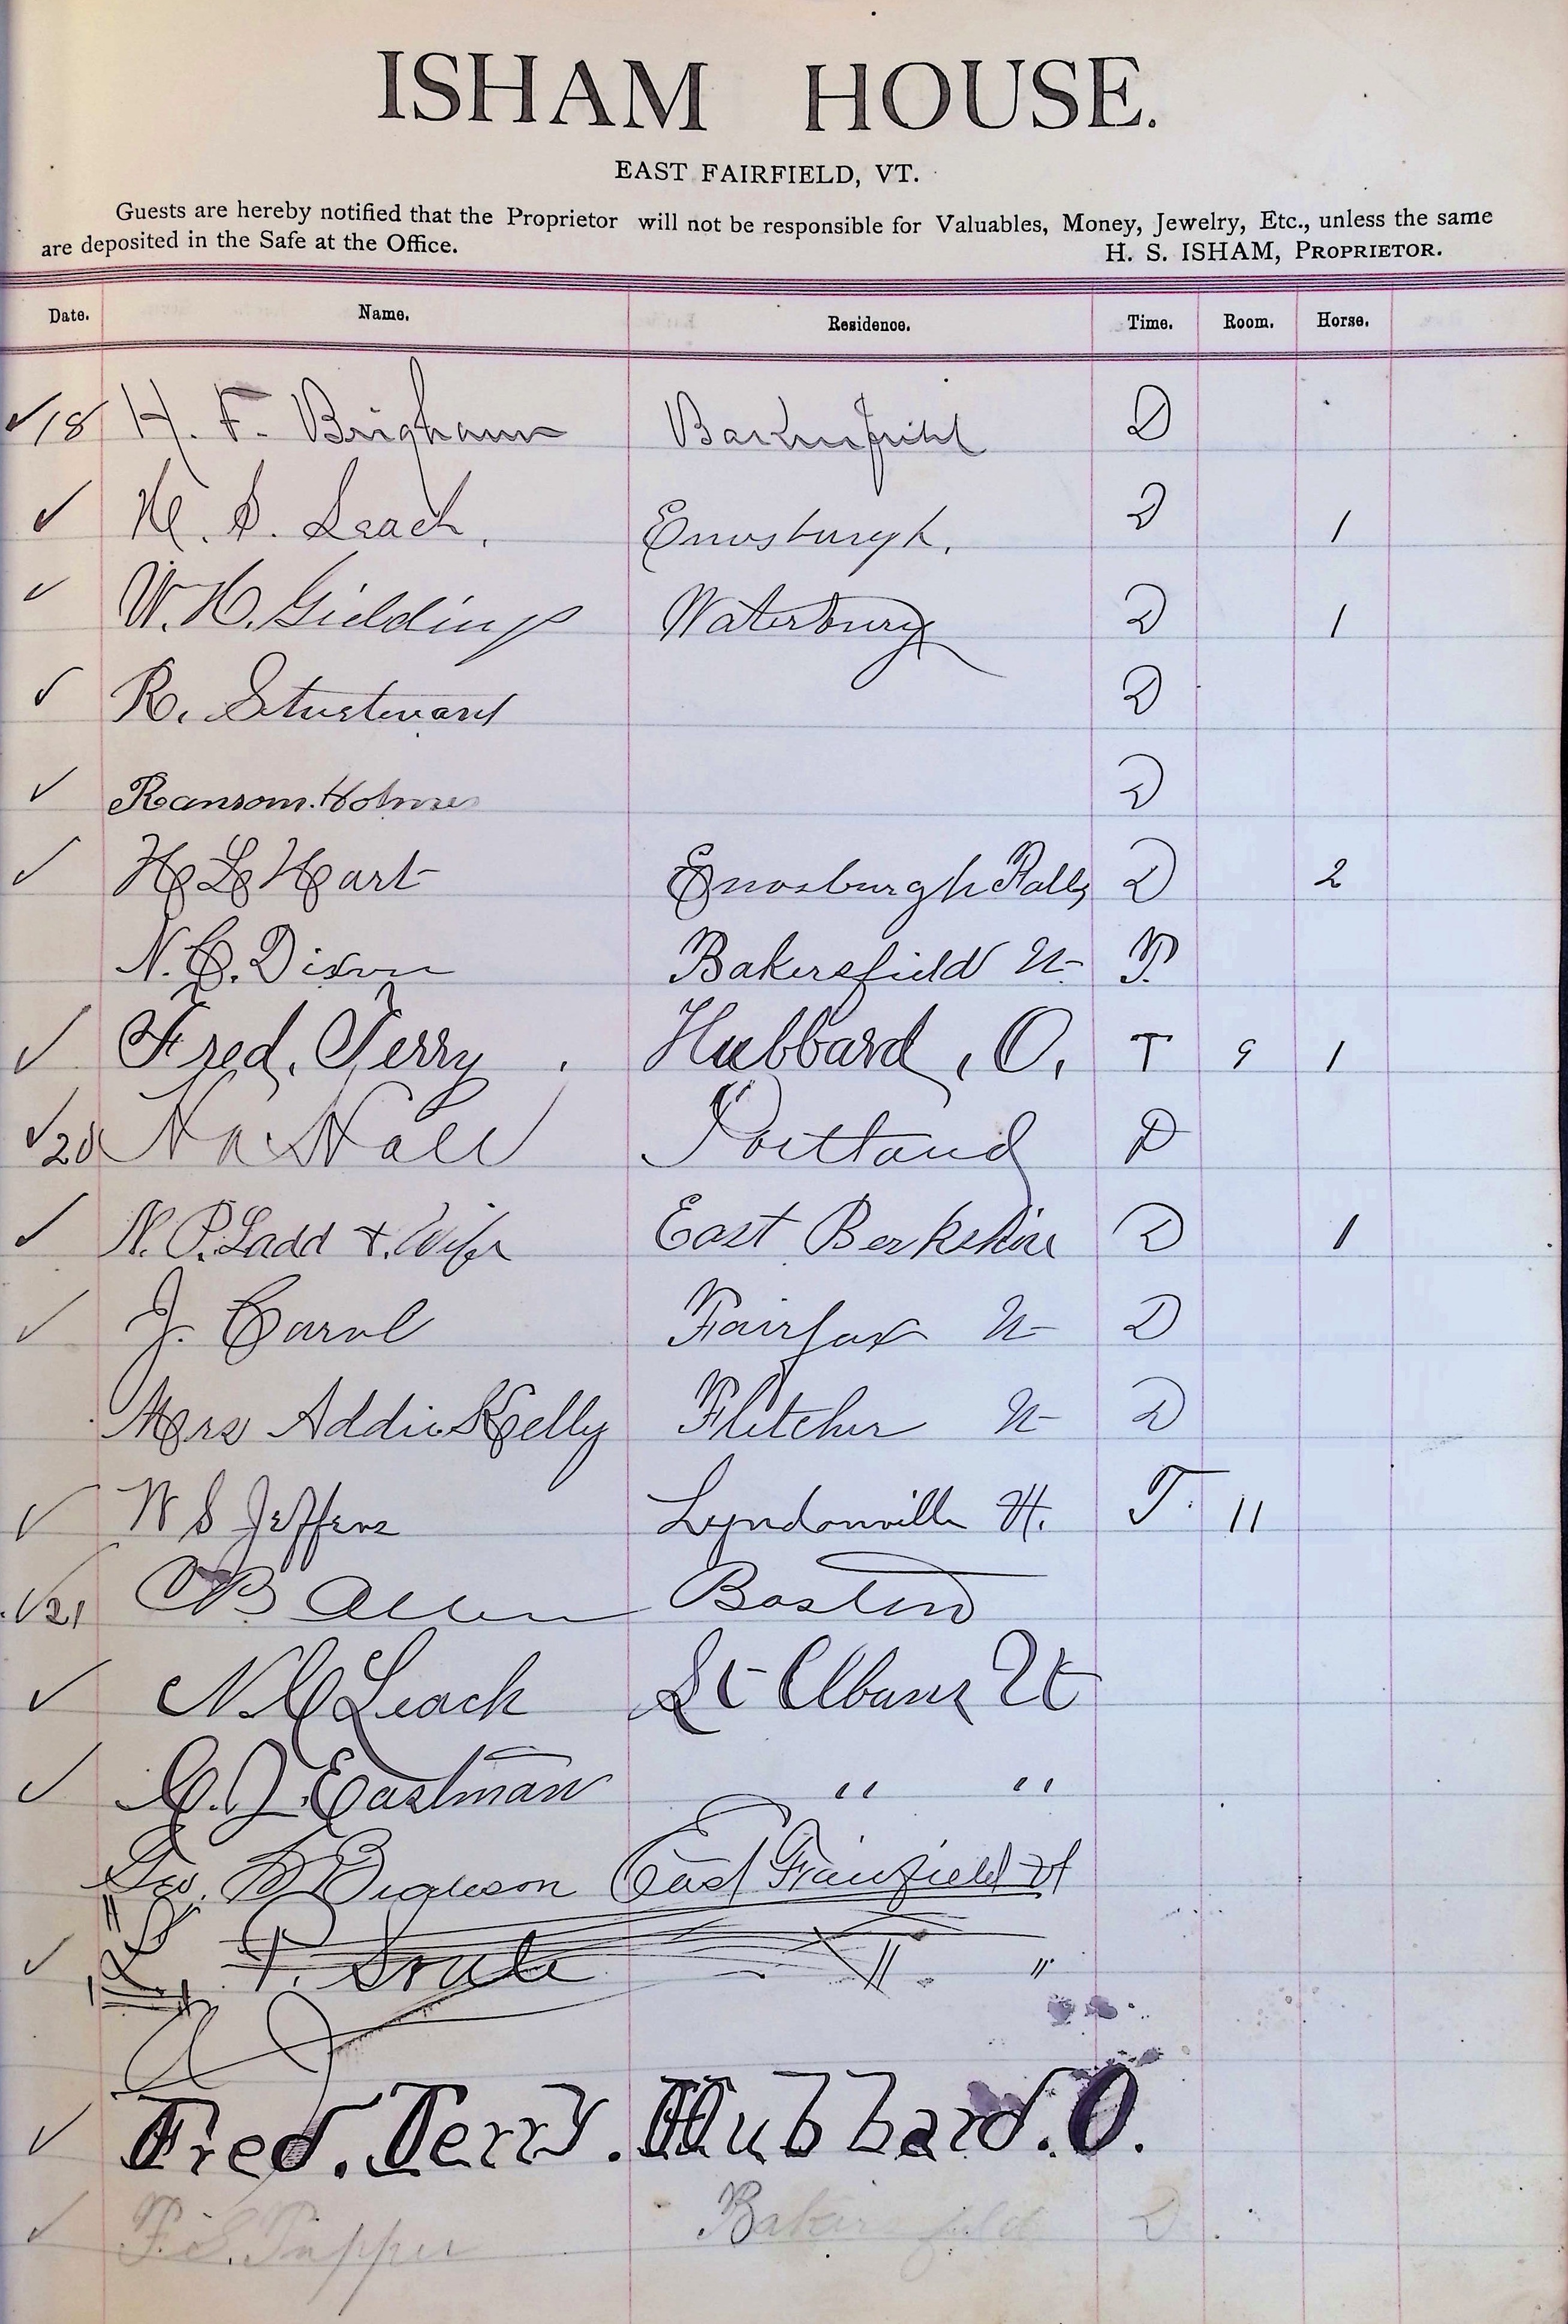 ISHAM HOUSE.
EAST FAIRFIELD, VT.
Guests are hereby notified that the Proprietor will not be responsible for Valuables, Money, Jewelry, Etc., unless the same
are deposited in the Safe at the Office. H. S. ISHAM, PROPRIETOR.
Date. Name. Residence. Time. Room. Horse.
✓18 H. F. Brigham Bakersfield D
✓ H. S. Leach, Enosburgh. D 1
✓ W. H. Giddings Waterbury D 1
✓ R. Sturtevant D
✓ Ransom. Holmes D
✓ H L Hart Enosburgh Falls D 2
N. C. Dixon Bakersfield Vt T
✓ Fred. Terry. Hubbard, O. T 9 1
✓20 Hall Portland D
✓ N. P. Ladd & Wife East Berkshire D 1
✓ J. Carol Fairfax Vt D
Mrs Addie Kelly Fletcher Vt D
✓ W S Jeffers Lyndonville Vt. T. 11
✓21 C B Allen Boston
✓ N. C Leach St Albans Vt
✓ C. J. Eastman " "
Geo. East Fairfield Vt
✓ P. Soule " "
✓ Fred. Terry. Hubbard. O.
✓ F. S. Tupper Bakersfield D